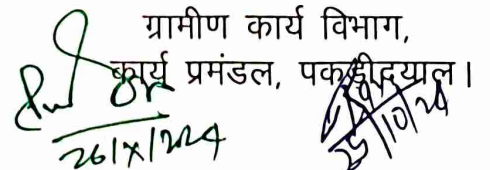 ग्रामीण कार्य विभाग,
कार्य प्रमंडल, पकड़ीदयाल।
26/X/2024
25/10/24